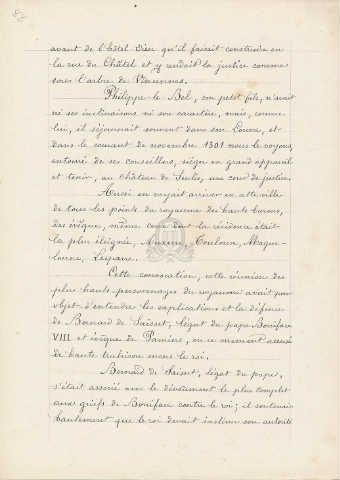 avant de l'Hôtel Dieu qu'il faisait construire en
la rue du Châtel et y rendait la justice comme
sous l'arbre de Vincennes.
Philippe-le Bel, son petit fils, n'avait
ni ses inclinaisons ni son caractère, mais, comme
lui, il séjournait souvent dans son Louvre, et
dans le courant de novembre 1301 nous le voyons,
entouré de ses conseillers, siéger en grand appareil
et tenir, au château de Senlis, une cour de justice.
Aussi on voyait arriver en cette ville
de tous les points du royaume des hauts barons,
des évêques, même ceux dont la résidence était
la plus éloignée, Auxerre, Toulouse, Mague-
lonne, Lesparre.
Cette convocation, cette réunion des
plus hauts personnages du royaume avait pour
objet d'entendre les explications et la défense
de Bernard de Saisset, légat du pape Boniface
VIII et évêque de Pamiers, en ce moment accusé
de haute trahison envers le roi.
Bernard de Saisset, légat du pape,
s'était associé avec le dévouement le plus complet
aux griefs de Boniface contre le roi; il soutenait
hautement que le roi devait incliner son autorité